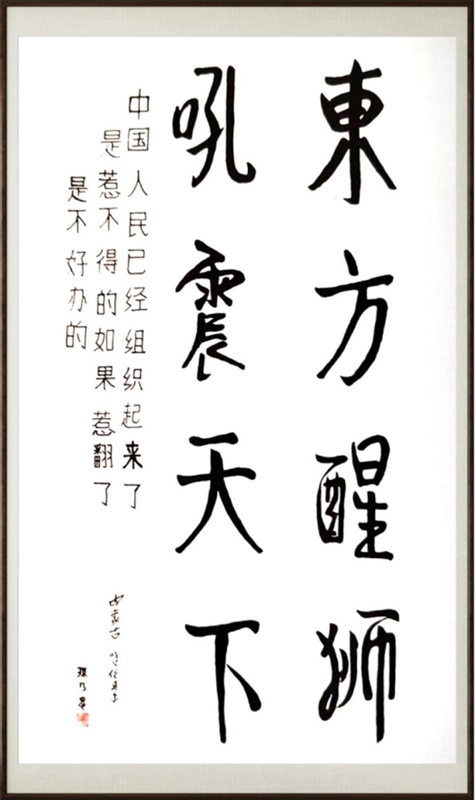 東方醒狮
吼震天下
中国人民已经组织起来了
是惹不得的如果惹翻了
是不好办的
内蒙古